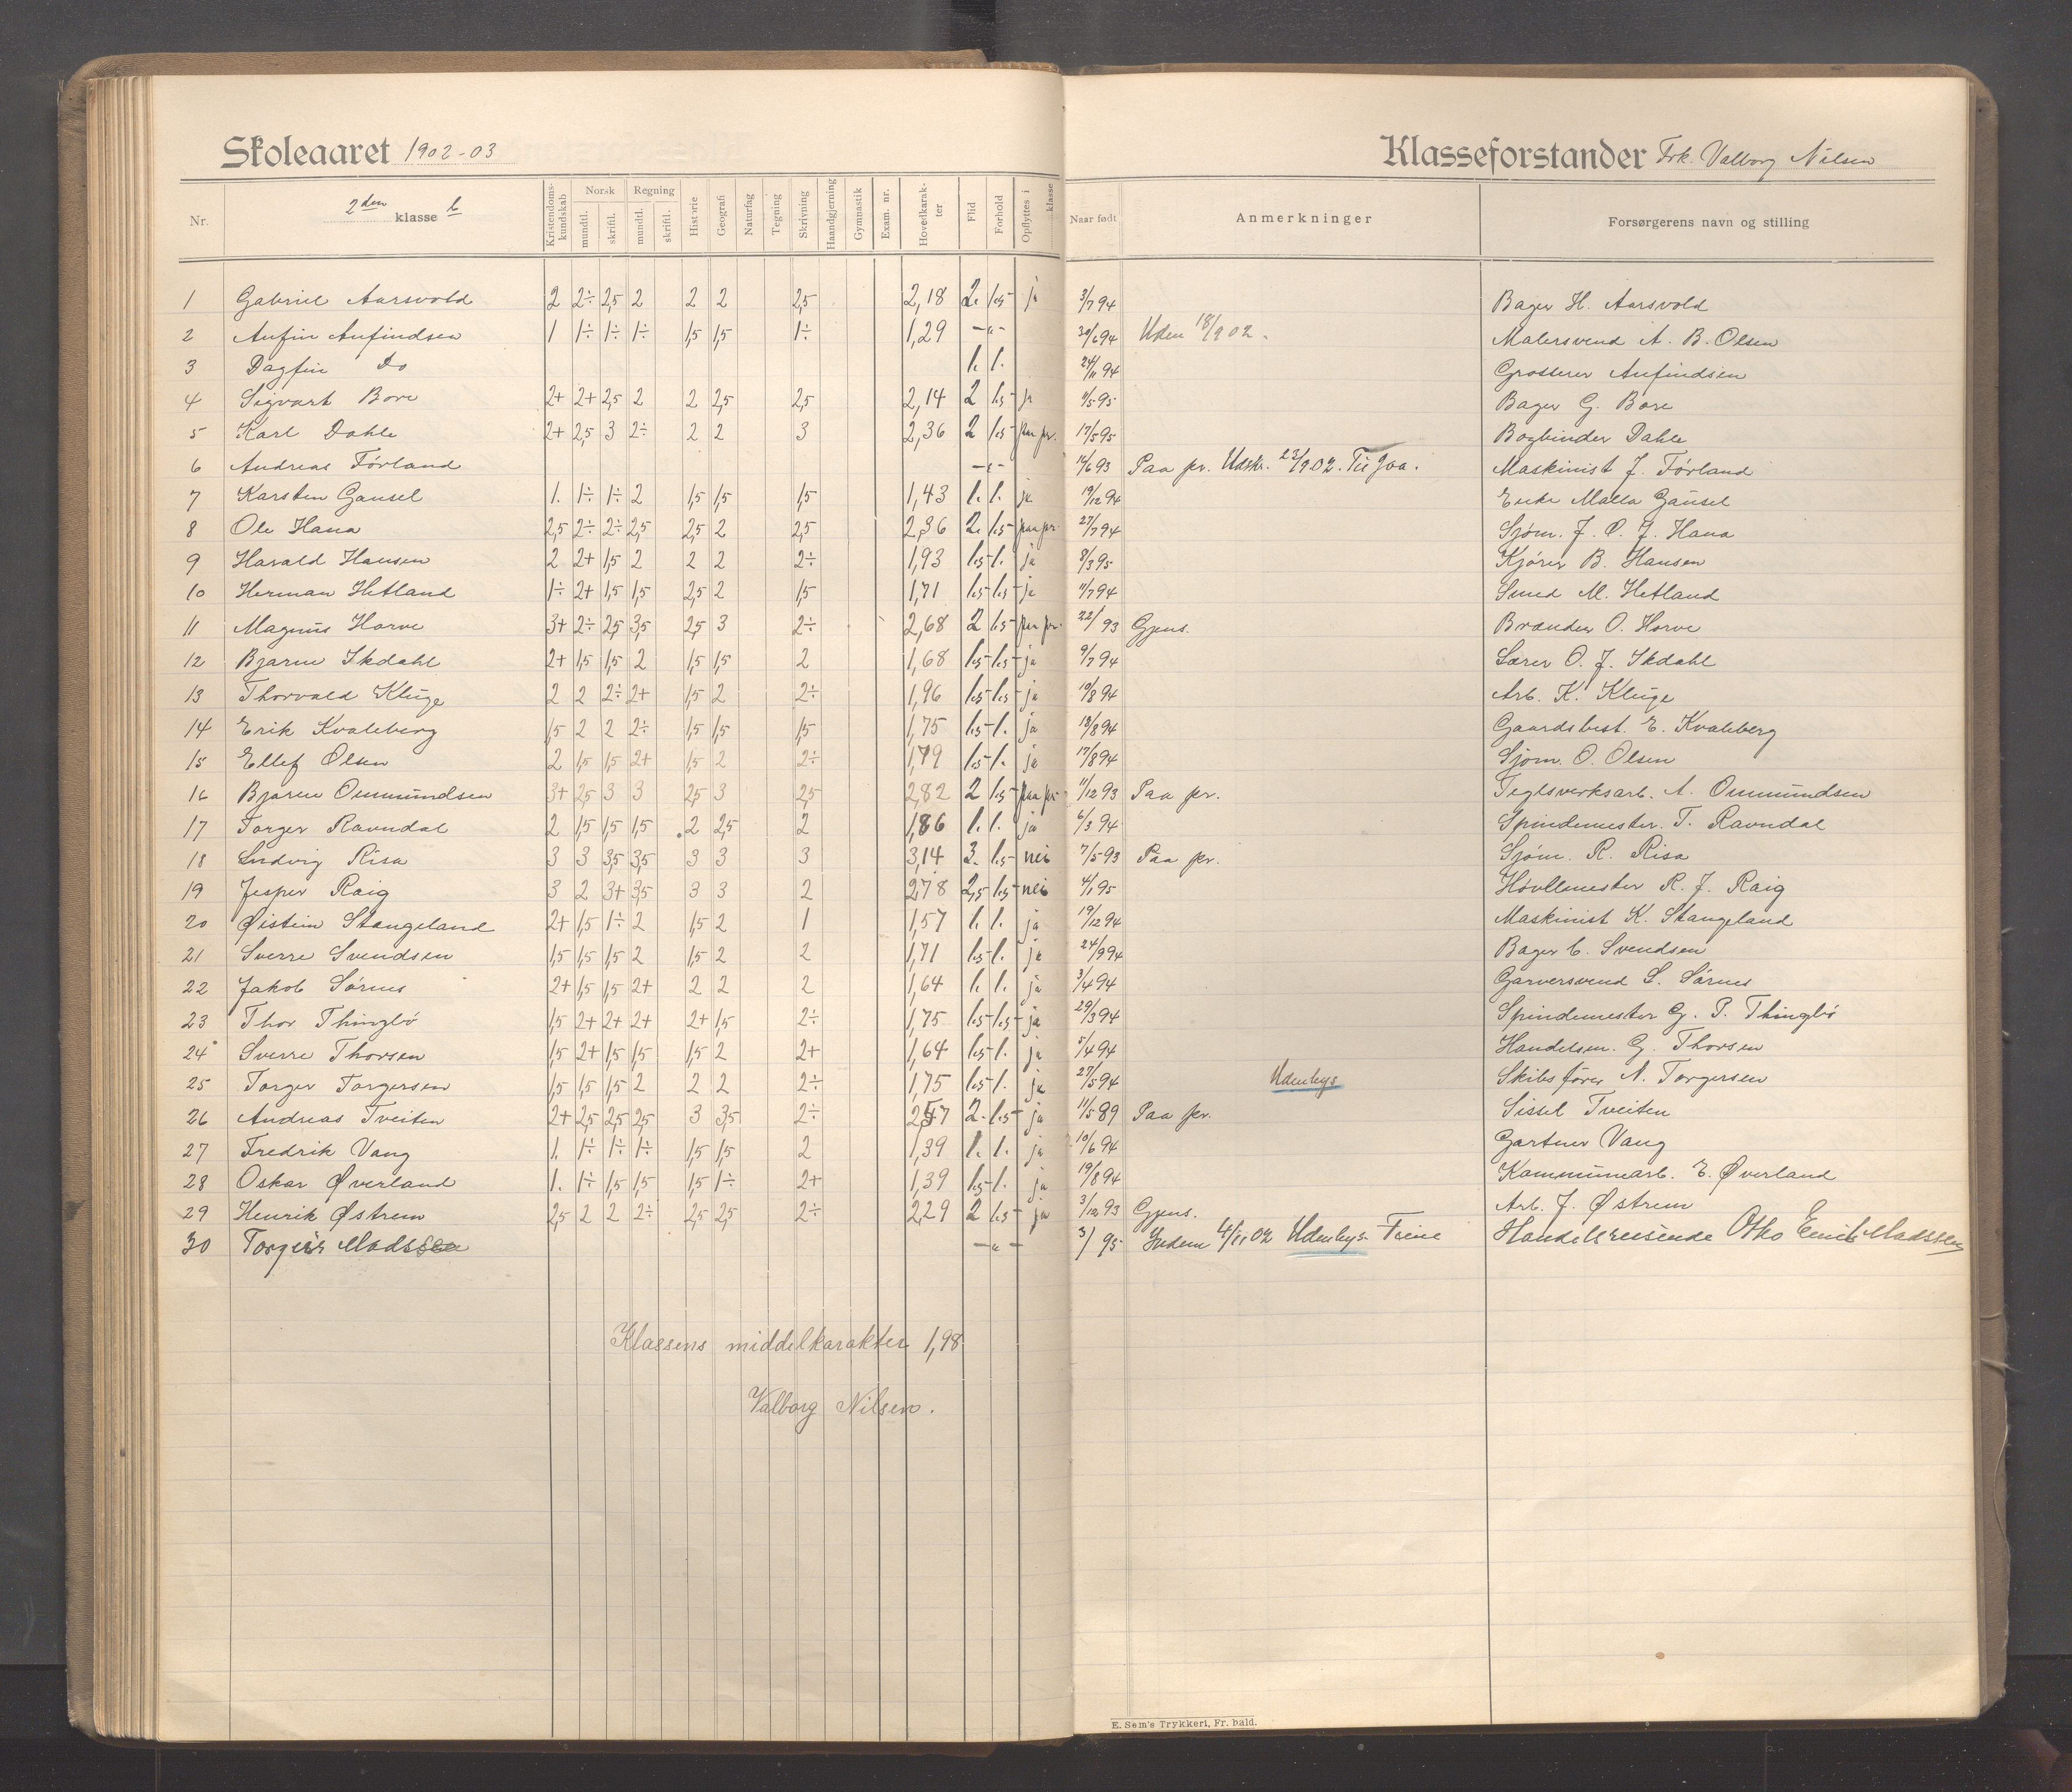 Skoleaaret 1902-03
Klasseforstander Frk. Valborg Nilsen
Nr. 2den klasse b Kristendoms-kundskab Norsk mundtl. skriftl. Regning mundtl. skriftl. Historie Geografi Naturfag Tegning Skrivning Haandgjerning Gymnastik Exam. nr. Hovedkarak-ter Flid Forhold Opflyttes i klasse Naar født Anmerkninger Forsørgerens navn og stilling
1 Gabriel Aarsvold 2 2÷ 2,5 2 2 2 2,5 2,18 2. 1.5 ja 3/7 94 Bager H. Aarsvold
2 Anfin Anfindsen 1 1÷ 1÷ 1÷ 1,5 1,5 1÷ 1,29 -"- 30/6 94 Uden 18/9 02. Malersvend A. B. Olsen
3 Dagfin Do 1. 1. 24/11 94 Grosserer Anfindsen
4 Sigvart Bore 2+ 2+ 2,5 2 2 2,5 2,5 2,14 2 1.5 ja 11/5 95 Bager G. Bore
5 Karl Dahle 2+ 2,5 3 2÷ 2 2 3 2,36 2 1.5 paa pr. 17/5 95 Bogbinder Dahle
6 Andreas Førland -"- 16/6 93 Paa pr. Udskr. 23/9 02. Til Maskinist J. Førland
7 Karsten Gausel 1. 1÷ 1÷ 2 1,5 1,5 1,5 1,43 1. 1. ja 19/12 94 Enke Malla Gausel
8 Ole Hana 2,5 2÷ 2÷ 2,5 2,5 2 2,5 2,36 2. 1.5 paa pr. 27/7 94 Sjøm. J. O. J. Hana
9 Harald Hansen 2 2+ 1,5 2 2 2 2÷ 1,93 1.5 1. ja 8/3 95 Kjører B. Hansen
10 Herman Hetland 1÷ 2+ 1,5 1,5 2,5 2 1,5 1,71 1.5 1.5 ja 11/7 94 Smed M. Hetland
11 Magnus Horve 3+ 2÷ 2,5 3,5 2,5 3 2÷ 2,68 2 1.5 paa pr. 22/ 93 Gjens. Brænder O. Horve
12 Bjarne Skdahl 2+ 1,5 1,5 2 1,5 1,5 2 1,68 1.5 1.5 ja 9/7 94 Lærer O. J. Skdahl
13 Thorvald Kluge 2 2 2÷ 2+ 1,5 2 2÷ 1,96 1.5 1.5 ja 10/8 94 Arb. K. Kluge
14 Erik Kvaleberg 1,5 2 2 2÷ 1,5 1,5 1,5 1,75 1.5 1. ja 18/8 94 Gaardsbest. E. Kvaleberg
15 Ellef Olsen 2 1,5 1,5 2+ 1,5 2 2÷ 1,79 1.5 1. ja 17/8 94 Sjøm. O. Olsen
16 Bjarne Ommundsen 3+ 2,5 3 3 2,5 3 2,5 2,82 2 1.5 paa pr. 11/12 93 Paa pr. Teglsverksarb. A. Ommundsen
17 Torger Ravndal 2 1,5 1,5 1,5 2 2,5 2 1,86 1. 1. ja 6/3 94 Spindemester. T. Ravndal
18 Ludvig Risa 3 3 3,5 3,5 3 3 3 3,14 3. 1.5 nei 7/5 93 Paa pr. Sjøm. R. Risa
19 Jesper Raig 3 2 3+ 3,5 3 3 2 2,78 2,5 1.5 nei 4/1 95 Høvllmester R. J. Raig
20 Øistein Stangeland 2+ 1,5 1÷ 2 1,5 2 1 1,57 1. 1. ja 19/12 94 Maskinist K. Stangeland
21 Sverre Svendsen 1,5 1,5 1,5 2 1,5 2 2 1,71 1.5 1. ja 24/9 94 Bager C. Svendsen
22 Jakob Sørnes 2+ 1,5 1,5 2+ 2 2 2 1,64 1. 1. ja 3/4 94 Garversvend S. Sørnes
23 Thor Thingbø 1,5 2+ 2+ 2+ 2+ 1,5 2÷ 1,75 1.5 1.5 ja 29/3 94 Spindemester G. P. Thingbø
24 Sverre Thorsen 1,5 2+ 1,5 1,5 1,5 2 2+ 1,64 1.5 1. ja 5/4 94 Handelsm. G. Thorsen
25 Torger Torgersen 1,5 1,5 1,5 2 2 2 2÷ 1,75 1.5 1. ja 27/5 94 Udenbys Skibsfører N. Torgersen
26 Andreas Tveiten 2+ 2,5 2,5 2,5 3 3,5 2÷ 2,57 2. 1.5 ja 11/5 89 Paa pr. Sissel Tveiten
27 Fredrik Vang 1. 1÷ 1÷ 1÷ 1,5 1,5 2 1,39 1. 1. ja 10/6 94 Gartner Vang
28 Oskar Øverland 1. 1÷ 1,5 1,5 1,5 1÷ 2+ 1,39 1.5 1. ja 19/8 94 Kommunearb. E. Øverland
29 Henrik Østrem 2,5 2 2 2÷ 2,5 2,5 2÷ 2,29 2 1.5 ja 3/12 93 Gjens. Arb. J. Østrem
30 Torgeir Madssen -"- 3/ 95 Indem 4/11 02 Udenbys Handelsreisende Otho Emil Madssen
Klassens middelkarakter 1,98
Valborg Nilsen.
E. Sem's Trykkeri, Fr. hald.